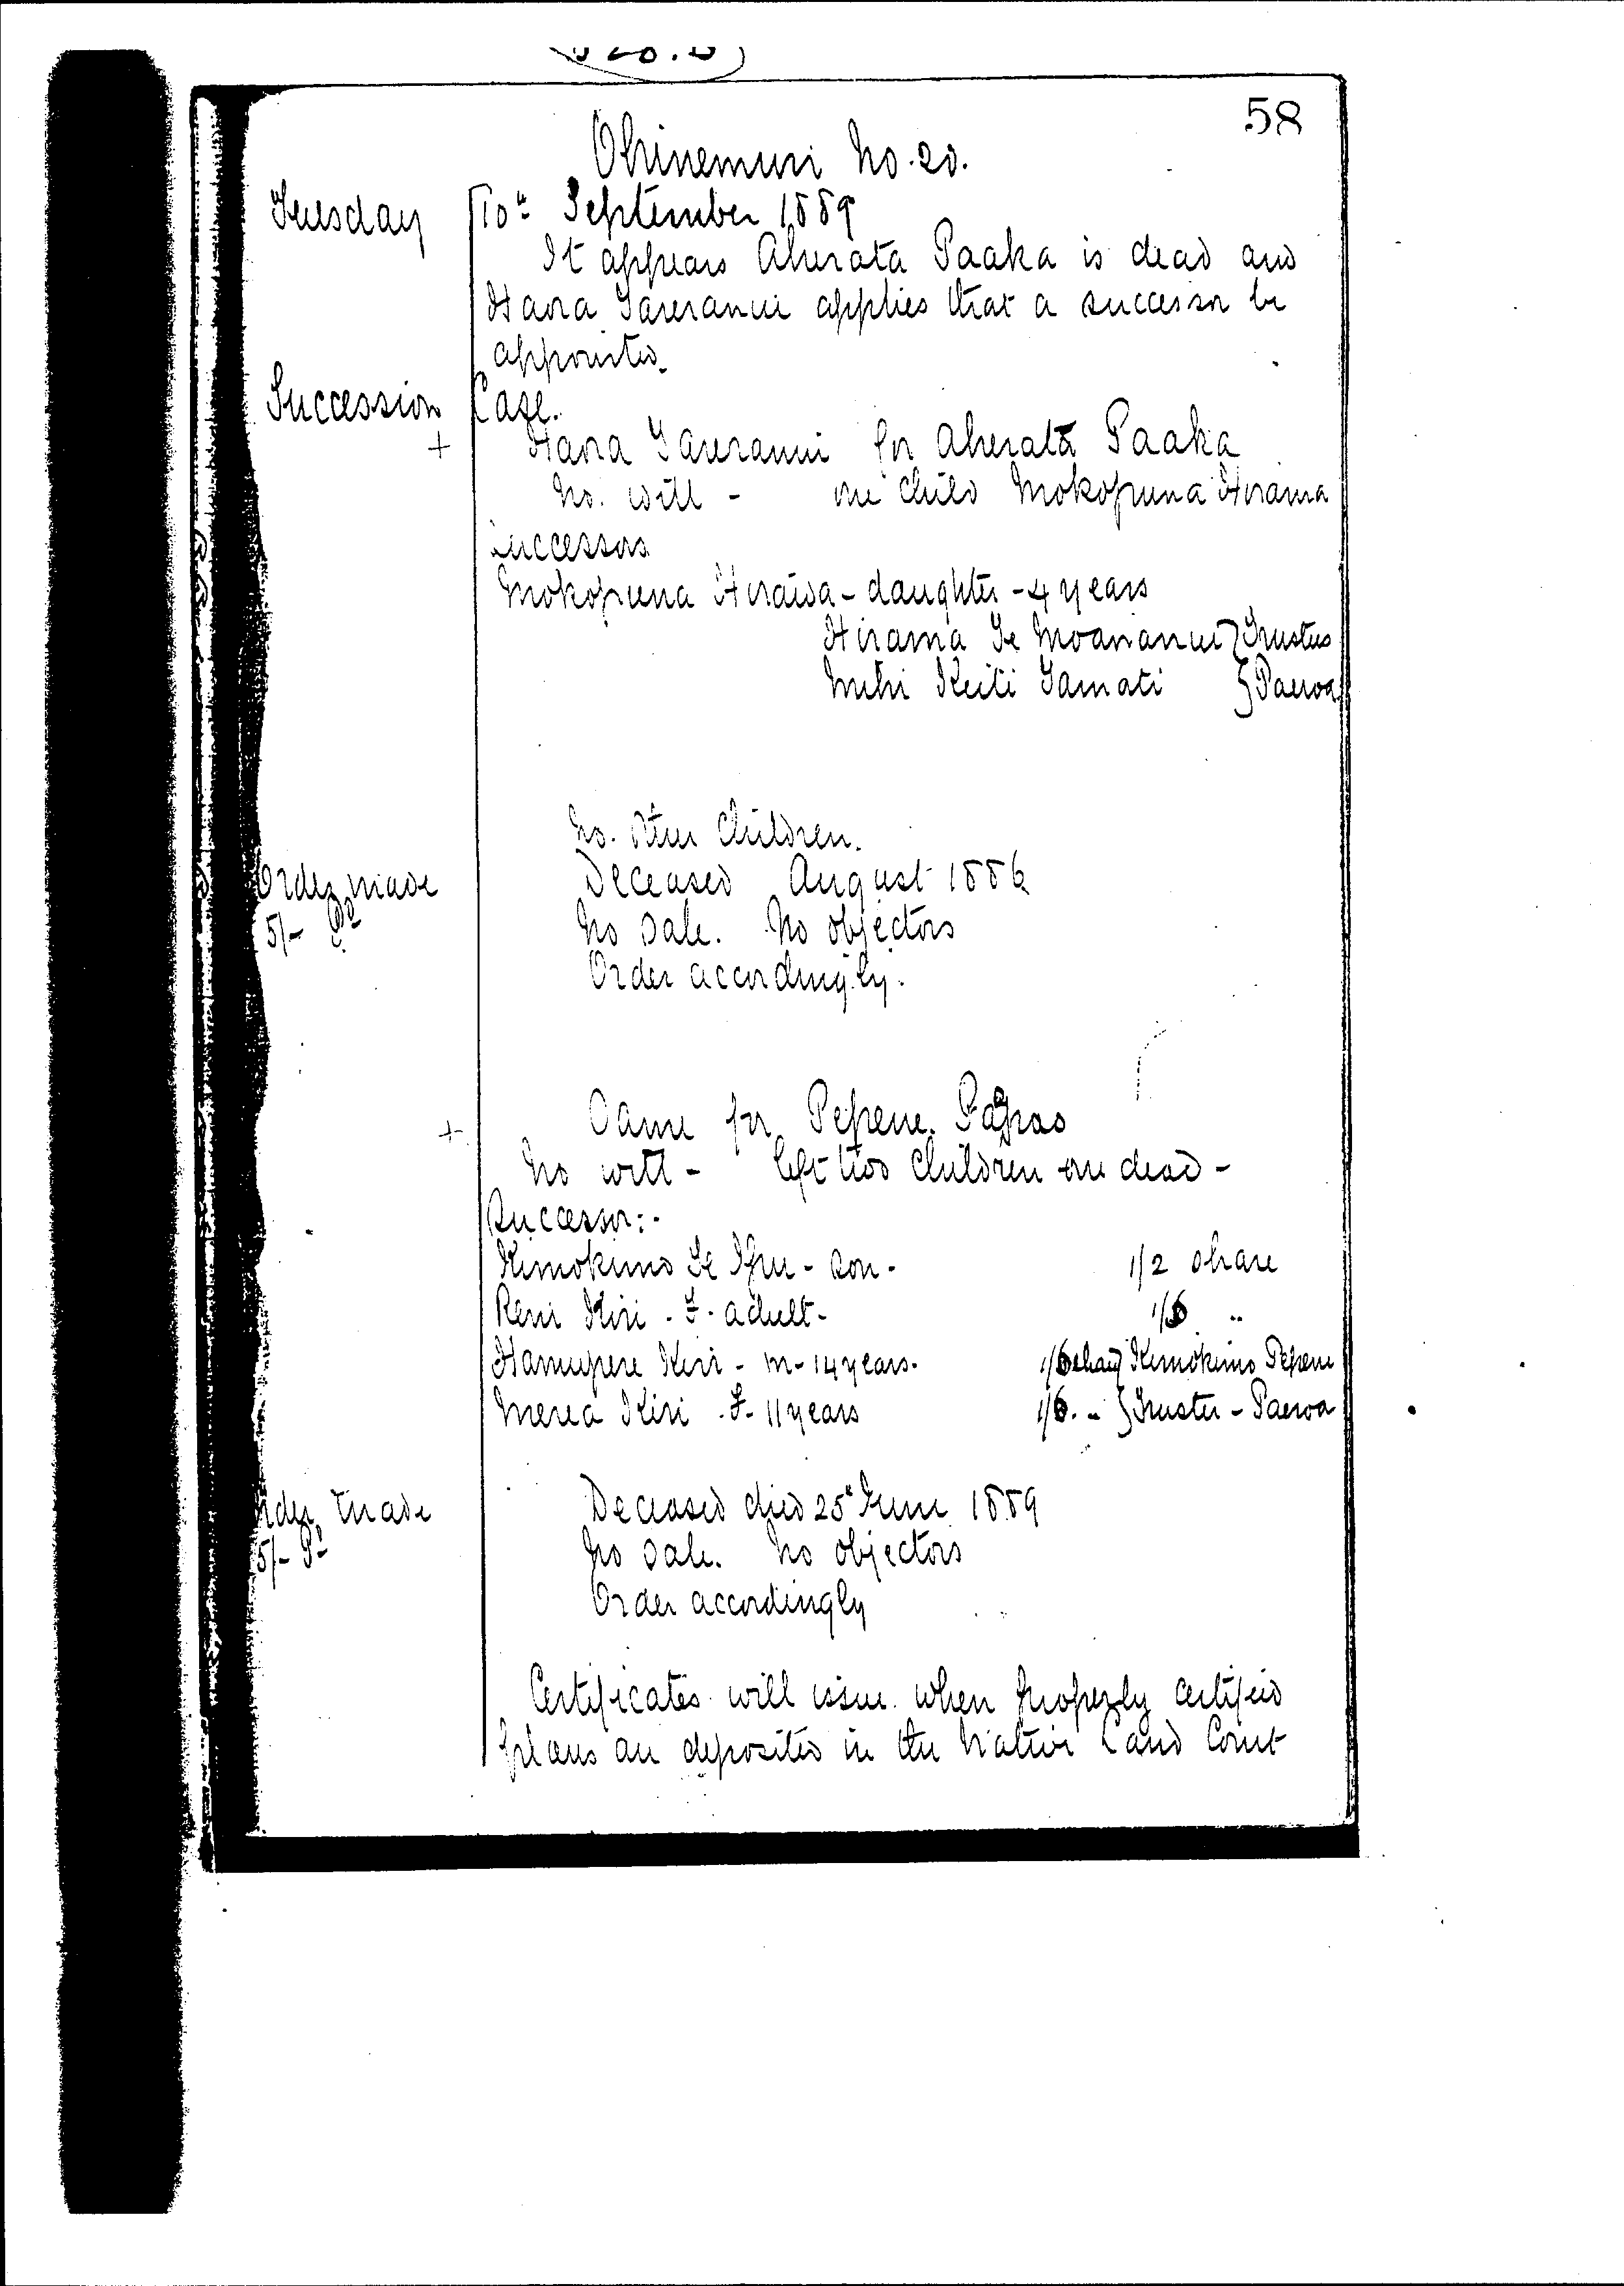 58
Ohinemuri No. 20.
Tuesday 10th September 1889
It appears Aherata Paaka is dead and
Haora Tareranui applies that a successor be
appointed.
Succession Case.
+ Haora Tareranui for Aherata Paaka
No. will - one child Mokopuna Hirama
Successors
Mokopuna Hirama - daughter - 4 years
Hirama Te Moananui } Trustees
Mihi Keiti Tamati } Paeroa
No. other children.
Order made Deceased August 1886
5/- Pd No sale. No objectors
Order accordingly.
+ Same for Pepene Paopao
No will - left two children one dead -
Successor:-
Kimokimo Te - son - 1/2 share
Reni Kiri - F. adult - 1/6 "
Hamupere Kiri - M - 14 years. 1/6 share } Kimokimo Pepene
Merea Kiri - F - 11 years 1/6. " } Trustee - Paeroa
Order made Deceased died 25th June 1889
5/- Pd No sale. No objectors
Order accordingly
Certificates will issue when properly certified
plans are deposited in the Native Land Court